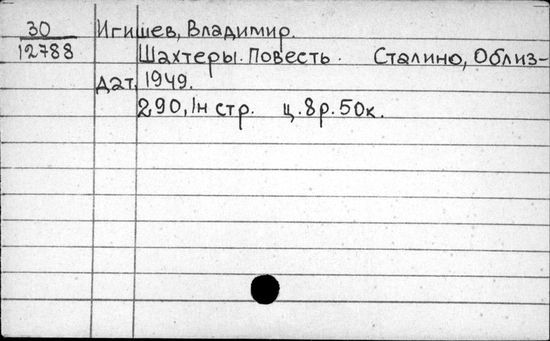 30 Игишев, Владимир.
12788 Шахтеры. Повесть. Сталино, Облиз-
дат, 1949.
290, 1н стр. ц. 8р. 50к.